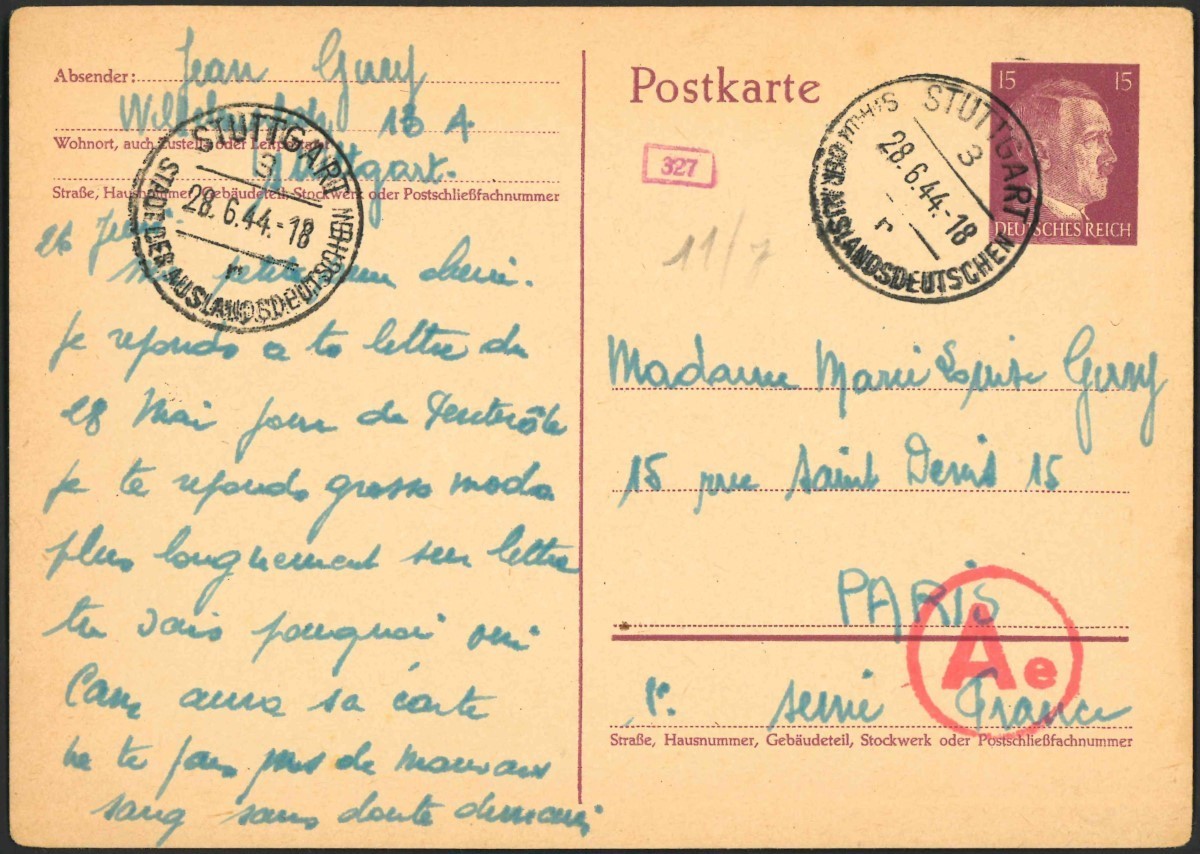 Absender: Jean Gury
13 A
Wohnort, auch Zustell- oder Leitpostamt
Stuttgart.
Straße, Hausnummer, Gebäudeteil, Stockwerk oder Postschließfachnummer
STUTTGART
3
28.6.44.-18
r
STADT DER AUSLANDSDEUTSCHEN
26
Ma petite cherie.
Je reponds a ta lettre du
28 Mai jour de Pentecôte
je te reponds grosso modo
plus longuement sur lettre
tu vois pourquoi oui
aura sa carte
ne te fais pas de mauvais
sang sans doute demain
Postkarte
15 15
DEUTSCHES REICH
STUTTGART
3
28.6.44.-18
r
STADT DER AUSLANDSDEUTSCHEN
327
11/7
Madame Marie Louise Gury
15 rue Saint Denis 15
PARIS
Ae
1. France
Straße, Hausnummer, Gebäudeteil, Stockwerk oder Postschließfachnummer